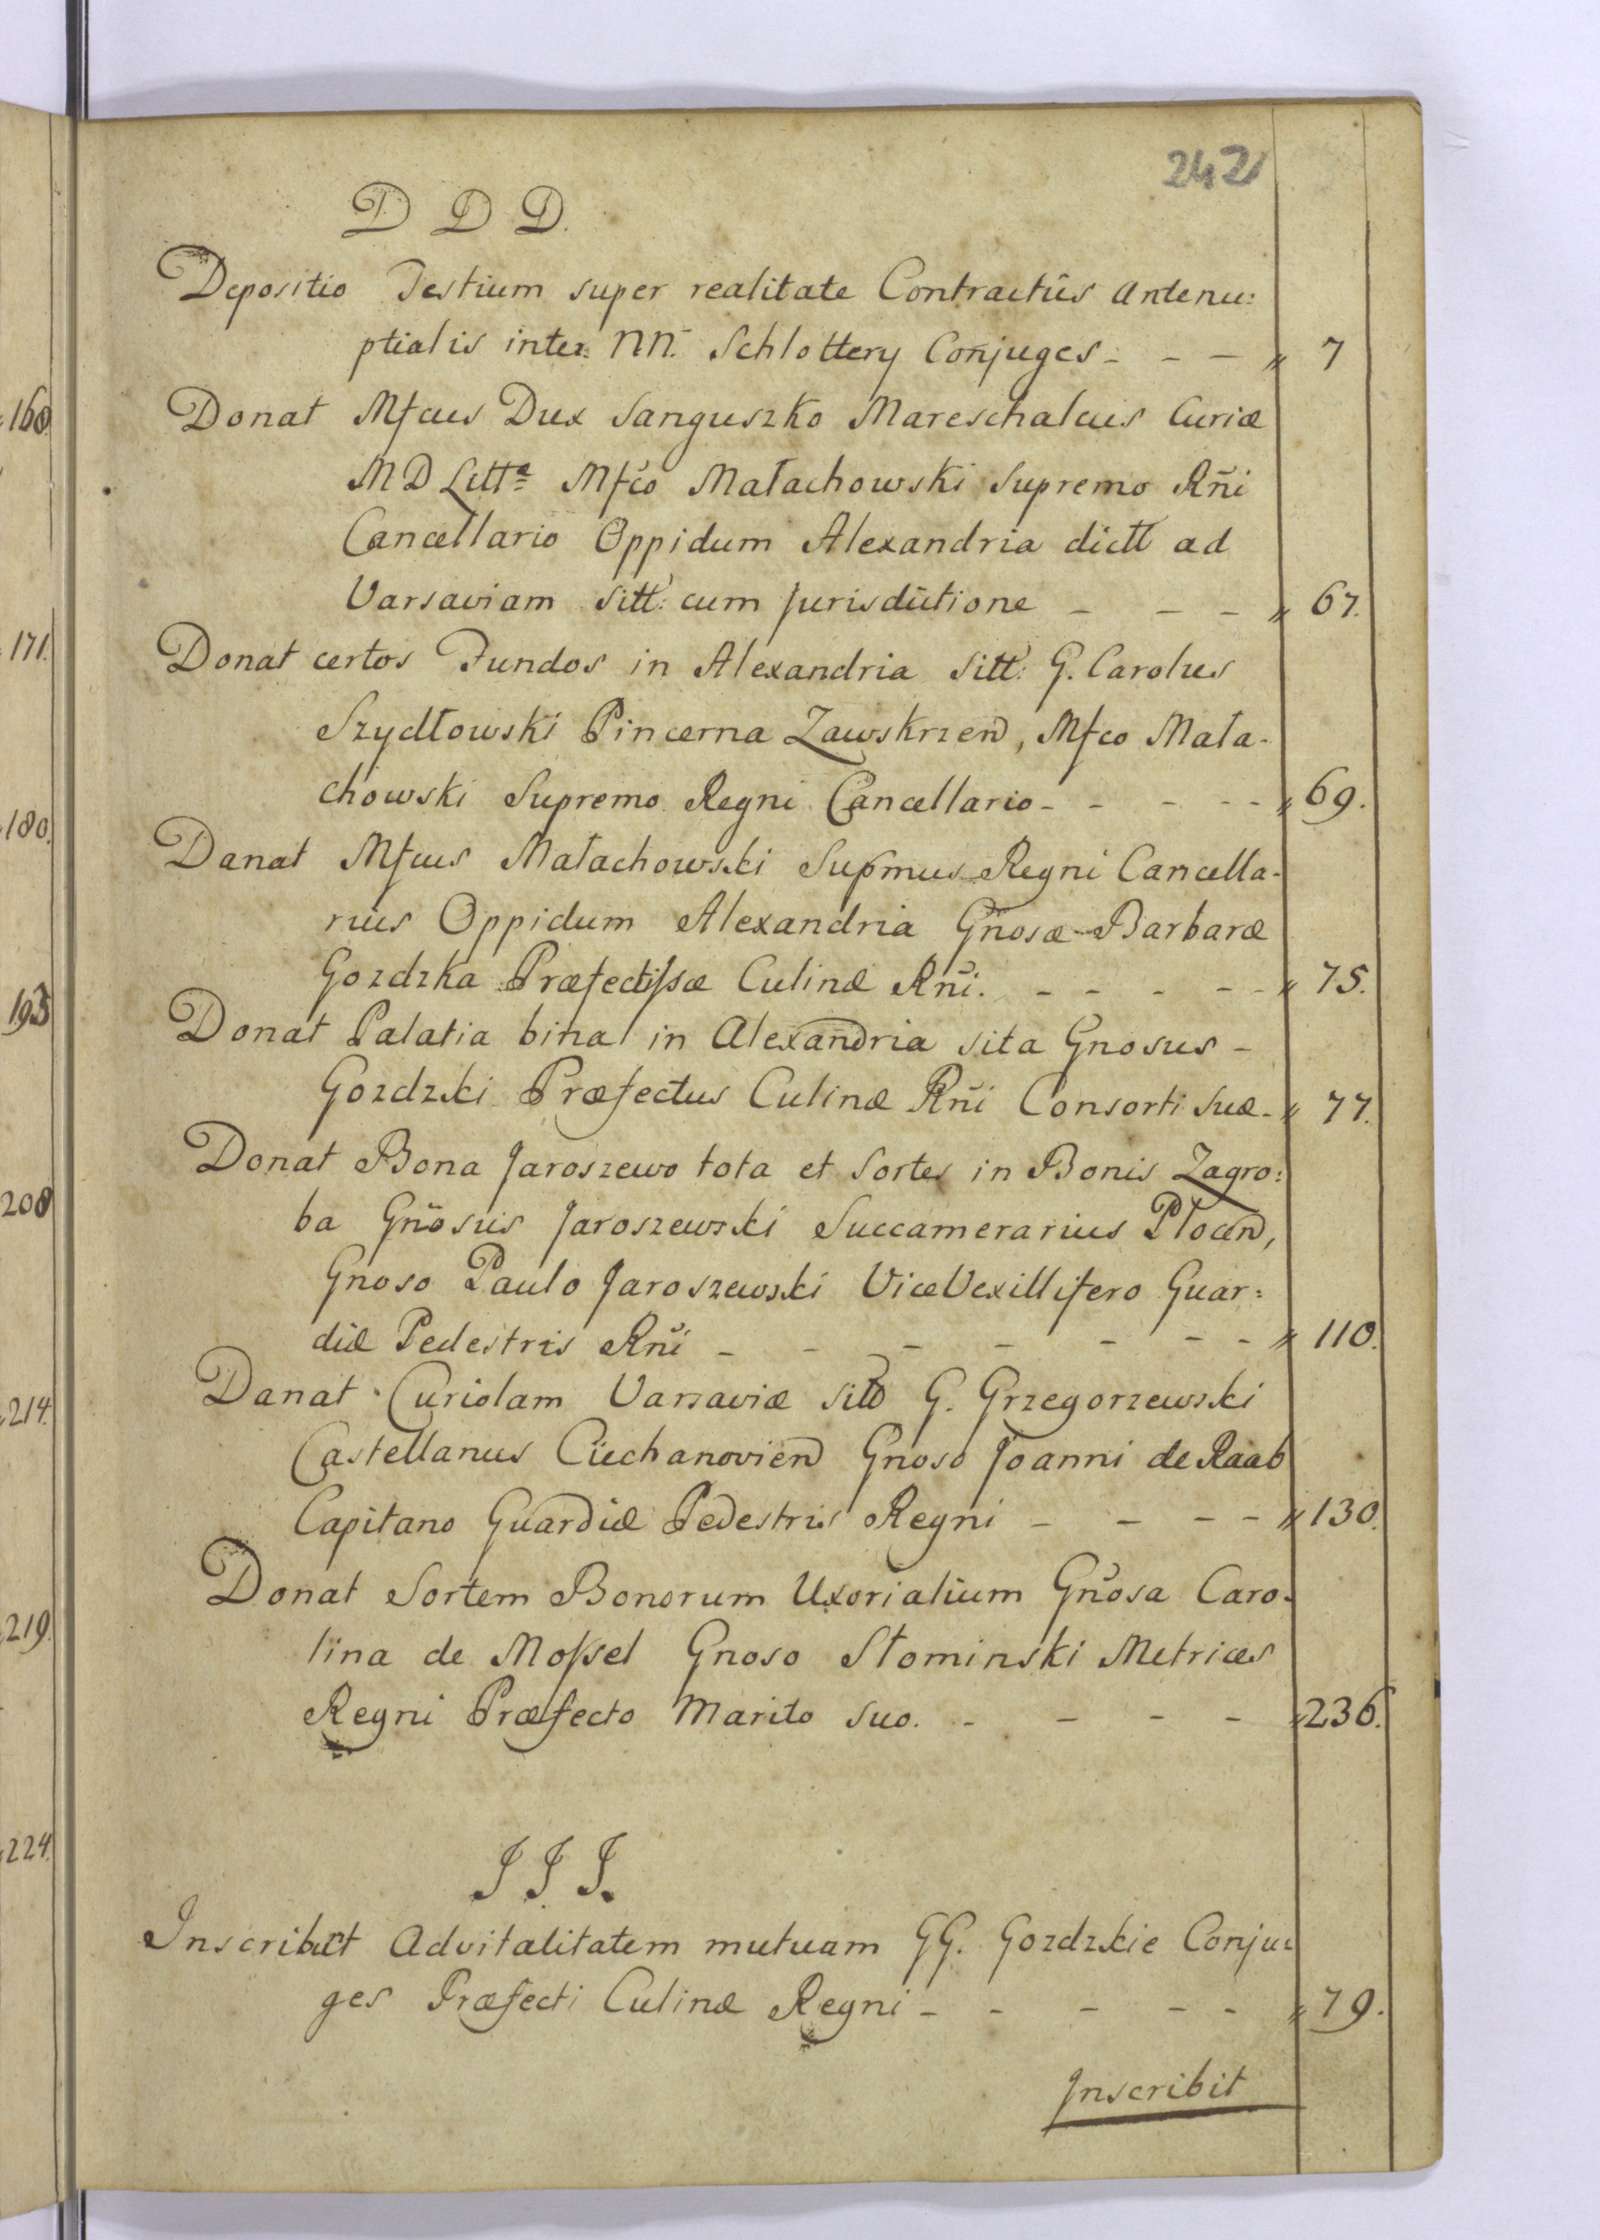 242
D D D.
Depositio Testium super realitate Contractûs Antenu:
ptialis inter: NN. Schlottery Conjuges - - - " 7
Donat Mfcus Dux Sanguszko Mareschalcus Curiæ
M D Litta Mfco Małachowski Supremo Rñi
Cancellario Oppidum Alexandria dictt ad
Varsaviam sitt: cum Jurisdictione - - - " 67.
Donat certos Fundos in Alexandria sitt: G. Carolus
Szydłowski Pincerna Zawskrzen, Mfco Mała-
chowski Supremo Regni Cancellario - - - - - " 69.
Donat Mfcus Małachowski Supmus Regni Cancella-
rius Oppidum Alexandria Gñosæ Barbaræ
Gozdzka Præfectissæ Culinæ Rñi. - - - - - " 75.
Donat Palatia bina in Alexandria sita Gnosus -
Gozdzki Præfectus Culinæ Rñi Consorti suæ - " 77.
Donat Bona Jaroszewo tota et Sortes in Bonis Zagro:
ba Gñosus Jaroszewski Succamerarius Płocen,
Gnoso Paulo Jaroszewski ViceVexillifero Guar:
diæ Pedestris Rñi - - - - - - - " 110.
Donat Curiolam Varsaviæ sitt G. Grzegorzewski
Castellanus Ciechanovien Gnoso Joanni de Raab
Capitano Guardiæ Pedestris Regni - - - - " 130.
Donat Sortem Bonorum Uxorialium Gñosa Caro-
lina de Mossel Gnoso Słominski Metrices
Regni Præfecto Marito suo. - - - - " 236.
J J J.
Inscribunt Advitalitatem mutuam GG. Gozdzkie Conju:
ges Præfecti Culinæ Regni - - - - - " 79.
Inscribit
160.
171.
180.
193
208
214.
219.
224.